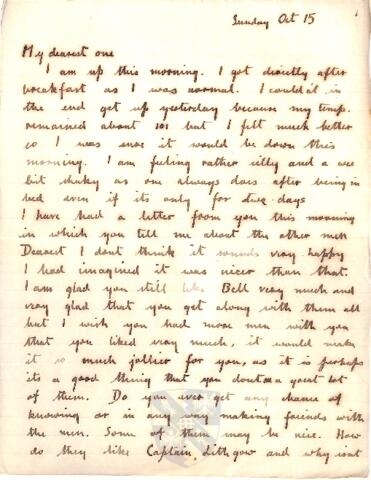 Sunday Oct 15
My dearest one
I am up this morning. I got directly after
breakfast as I was normal. I could'nt in
the end get up yesterday because my temp.
remained about 101 but I felt much better
so I was sure it would be down this
morning. I am feeling rather silly and a wee
bit shaky as one always does after being in
bed even if its only for two days
I have had a letter from you this morning
in which you tell me about the other men
Dearest I dont think it sounds very happy
I had imagined it was nicer than that.
I am glad you still like Bell very much and
very glad that you get along with them all
but I wish you had more men with you
that you liked very much, it would make
it so much jollier for you, as it is perhaps
its a good thing that you dont see a great lot
of them. Do you ever get any chance of
knowing or in any way making friends with
the men. Some of them may be nice. How
do they like Captain Lithgow and why isnt